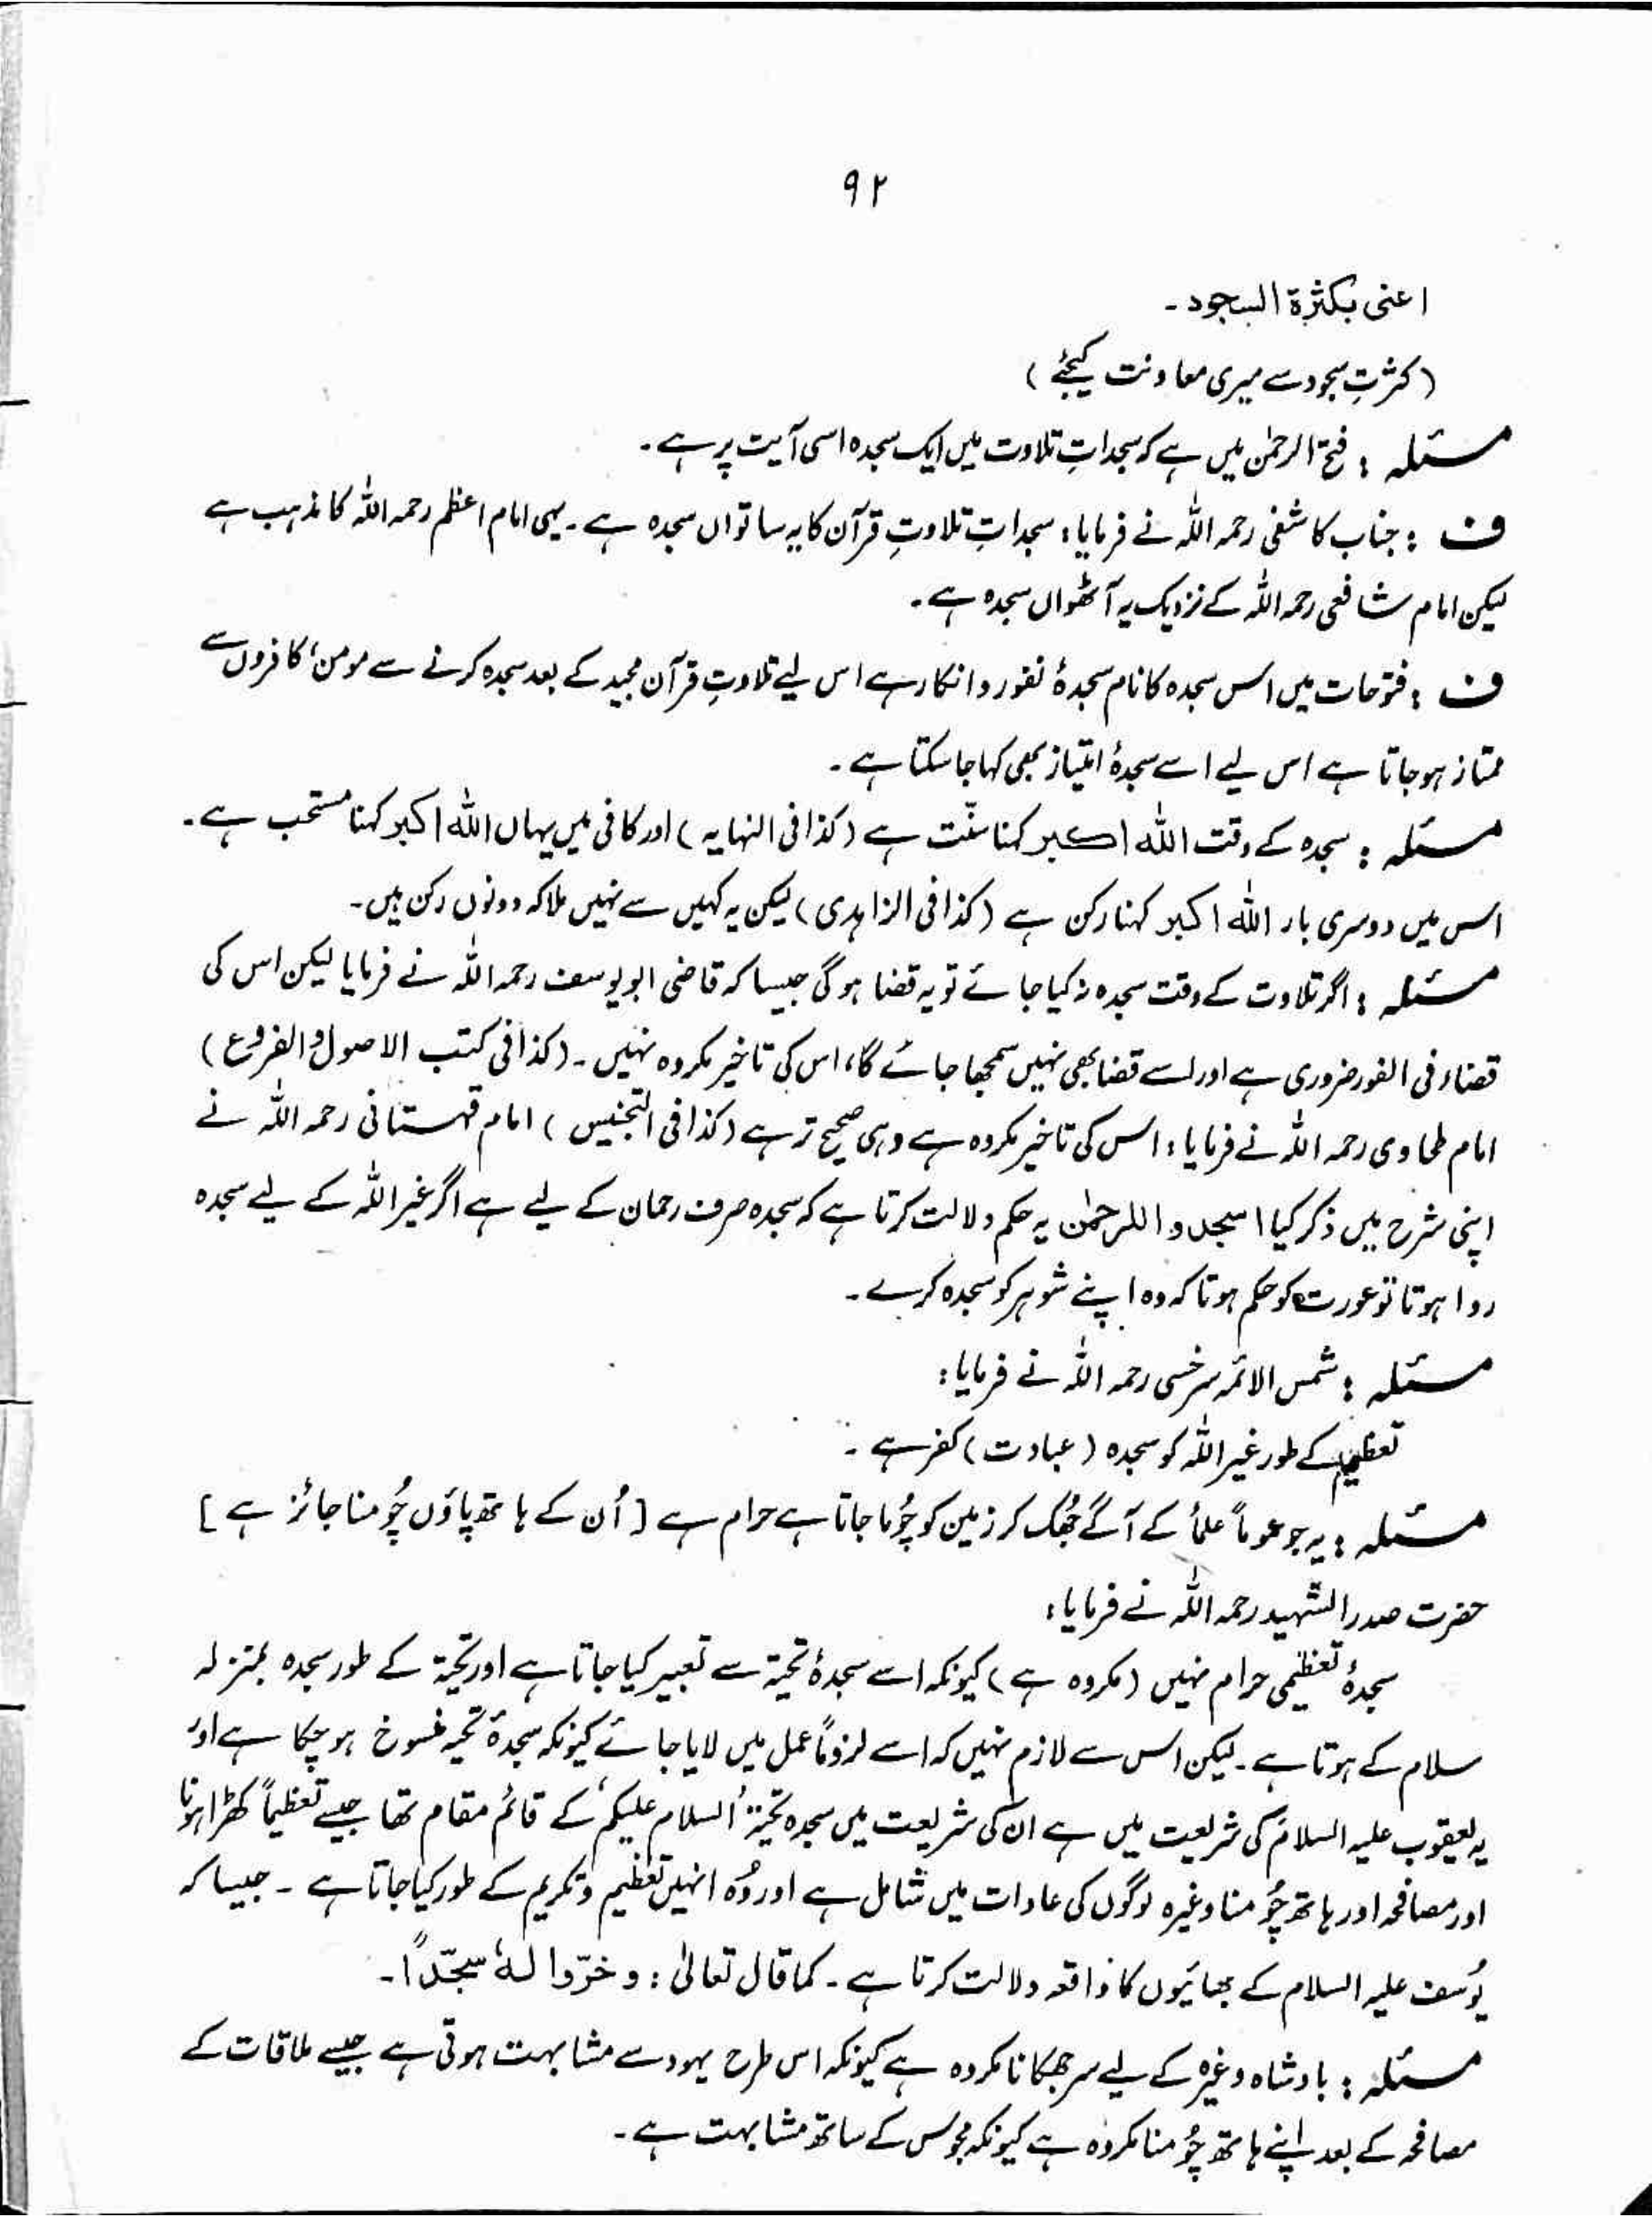 ۹۲
اعنی بکثرۃ السجود۔
(کثرتِ سجود سے میری معاونت کیجئے)
مسئلہ : فتح الرحمٰن میں ہے کہ سجداتِ تلاوت میں ایک سجدہ اسی آیت پر ہے ۔
ف : جناب کاشفی رحمہ اللہ نے فرمایا : سجداتِ تلاوتِ قرآن کا یہ ساتواں سجدہ ہے ۔ یہی امام اعظم رحمہ اللہ کا مذہب ہے
لیکن امام شافعی رحمہ اللہ کے نزدیک یہ آٹھواں سجدہ ہے ۔
ف : فتوحات میں اس سجدہ کا نام سجدۂ نفور و انکار ہے اس لیے تلاوتِ قرآن مجید کے بعد سجدہ کرنے سے مومن ، کافروں سے
ممتاز ہو جاتا ہے اس لیے اسے سجدۂ امتیاز بھی کہا جا سکتا ہے ۔
مسئلہ : سجدہ کے وقت اللہ اکبر کہنا سنّت ہے (کذا فی النہایہ) اور کافی میں یہاں اللہ اکبر کہنا مستحب ہے ۔
اس میں دوسری بار اللہ اکبر کہنا رکن ہے (کذا فی الزاہدی) لیکن یہ کہیں سے نہیں ملا کہ دونوں رکن ہیں ۔
مسئلہ : اگر تلاوت کے وقت سجدہ نہ کیا جائے تو یہ قضا ہوگی جیسا کہ قاضی ابویوسف رحمہ اللہ نے فرمایا لیکن اس کی
قضاء فی الفور ضروری ہے اور اسے قضا بھی نہیں سمجھا جائے گا، اس کی تاخیر مکروہ نہیں ۔ (کذا فی کتب الاصول والفروع)
امام طحاوی رحمہ اللہ نے فرمایا : اس کی تاخیر مکروہ ہے وہی صحیح تر ہے (کذا فی التجنیس) امام قہستانی رحمہ اللہ نے
اپنی شرح میں ذکر کیا اسجدوا للرحمٰن یہ حکم دلالت کرتا ہے کہ سجدہ صرف رحمان کے لیے ہے اگر غیر اللہ کے لیے سجدہ
روا ہوتا تو عورت کو حکم ہوتا کہ وہ اپنے شوہر کو سجدہ کرے ۔
مسئلہ : شمس الائمہ سرخسی رحمہ اللہ نے فرمایا :
تعظیم کے طور غیر اللہ کو سجدہ (عبادت) کفر ہے ۔
مسئلہ : یہ جو عموماً علمأ کے آگے جُھک کر زمین کو چُوما جاتا ہے حرام ہے [ اُن کے ہاتھ پاؤں چُومنا جائز ہے ]
حضرت صدر الشہید رحمہ اللہ نے فرمایا :
سجدۂ تعظیمی حرام نہیں (مکروہ ہے) کیونکہ اسے سجدۂ تحیۃ سے تعبیر کیا جاتا ہے اور تحیۃ کے طور سجدہ بمنزلہ
سلام کے ہوتا ہے ۔ لیکن اس سے لازم نہیں کہ اسے لزوماً عمل میں لایا جائے کیونکہ سجدۂ تحیہ منسوخ ہو چکا ہے اور
یہ یعقوب علیہ السلام کی شریعت میں ہے ان کی شریعت میں سجدہ تحیۃ 'السلام علیکم' کے قائم مقام تھا جیسے تعظیماً کھڑا ہونا
اور مصافحہ اور ہاتھ چُومنا وغیرہ لوگوں کی عادات میں شامل ہے اور وُہ انہیں تعظیم و تکریم کے طور کیا جاتا ہے ۔ جیسا کہ
یُوسف علیہ السلام کے بھائیوں کا واقعہ دلالت کرتا ہے ۔ کما قال تعالیٰ : و خرّوا لہٗ سجّداً ۔
مسئلہ : بادشاہ وغیرہ کے لیے سر جھکانا مکروہ ہے کیونکہ اس طرح یہود سے مشابہت ہوتی ہے جیسے ملاقات کے
مصافحہ کے بعد اپنے ہاتھ چُومنا مکروہ ہے کیونکہ مجوس کے ساتھ مشابہت ہے ۔